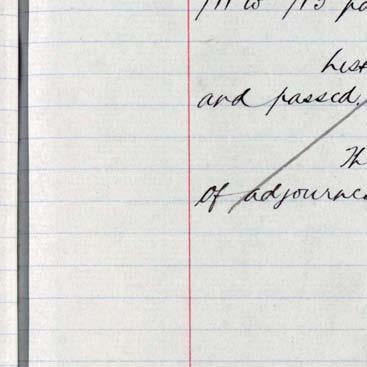 to 113 pa
List
and passed.
Th
of adjourne